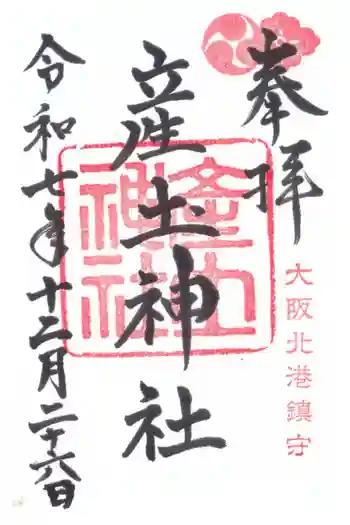 奉拝
大阪北港鎮守
産土神社
産土神社
令和七年十二月二十六日